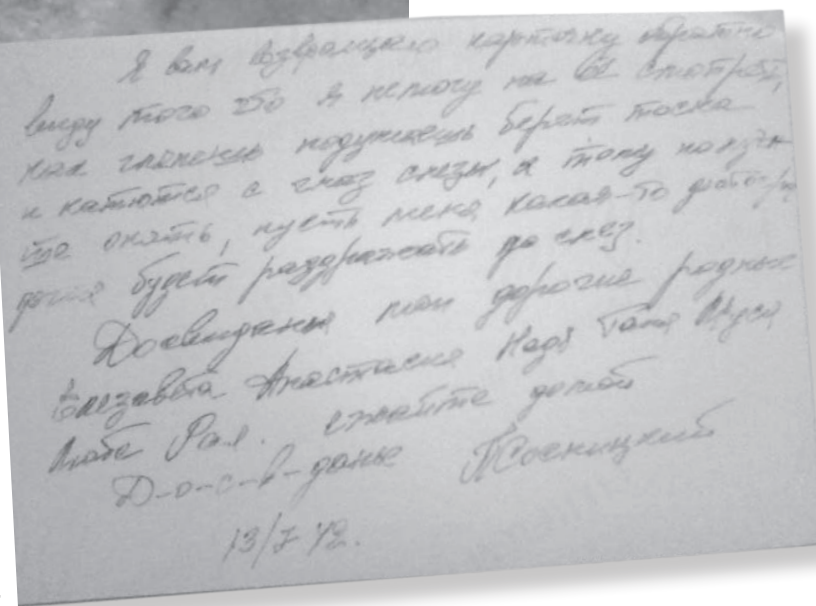 Я вам возвращаю карточку обратно
ввиду того што я немогу на её смотреть,
как глянешь подумаешь берет тоска
и катются с глаз слезы, а тому
опять, пусть меня какая-то
будет раздражать до слез.
Досвиданья мои дорогие родные
Елезавета Анастасия Надя Таня Маруся
Люба Рая. домой
Д-о-с-в-данье ПСосницкий
13/7 42.